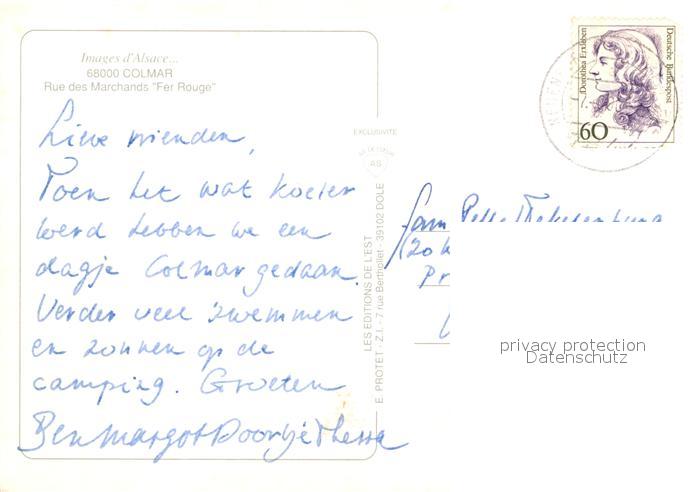 Images d'Alsace...
68000 COLMAR
Rue des Marchands "Fer Rouge"
Lieve vrienden,
Toen het wat koeler
werd hebben we een
dagje Colmar gedaan.
Verder veel zwemmen
en zonnen op de
camping. Groeten
Ben Margot Doortje Thessa
EXCLUSIVITE
AS
LES EDITIONS DE L'EST
E. PROTET - Z.I. - 7 rue Berthollet - 39102 DOLE
Dorothea Erxleben
Deutsche Bundespost
60
Fam
privacy protection
Datenschutz